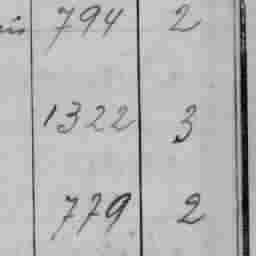 794 2
1322 3
779 2